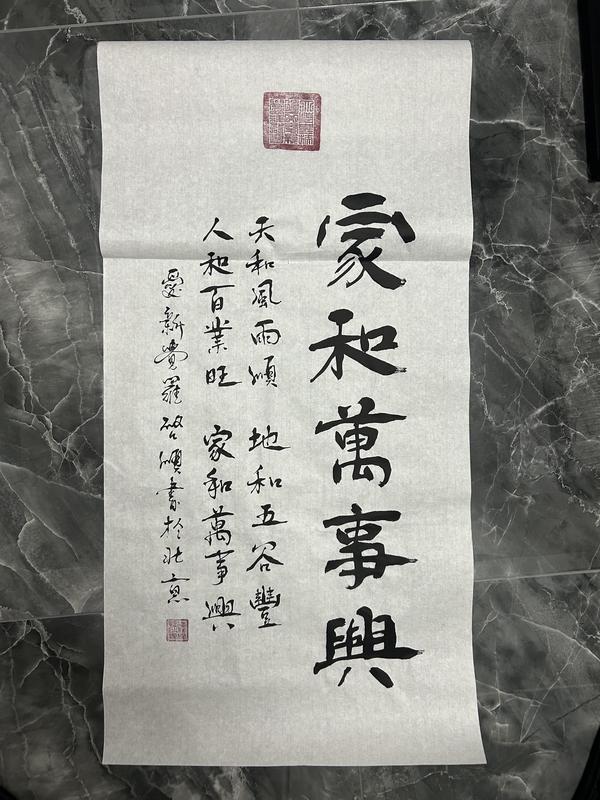 家和萬事興
天和風雨順 地和五谷豐
人和百業旺 家和萬事興
愛新覺羅 啟順書於北京